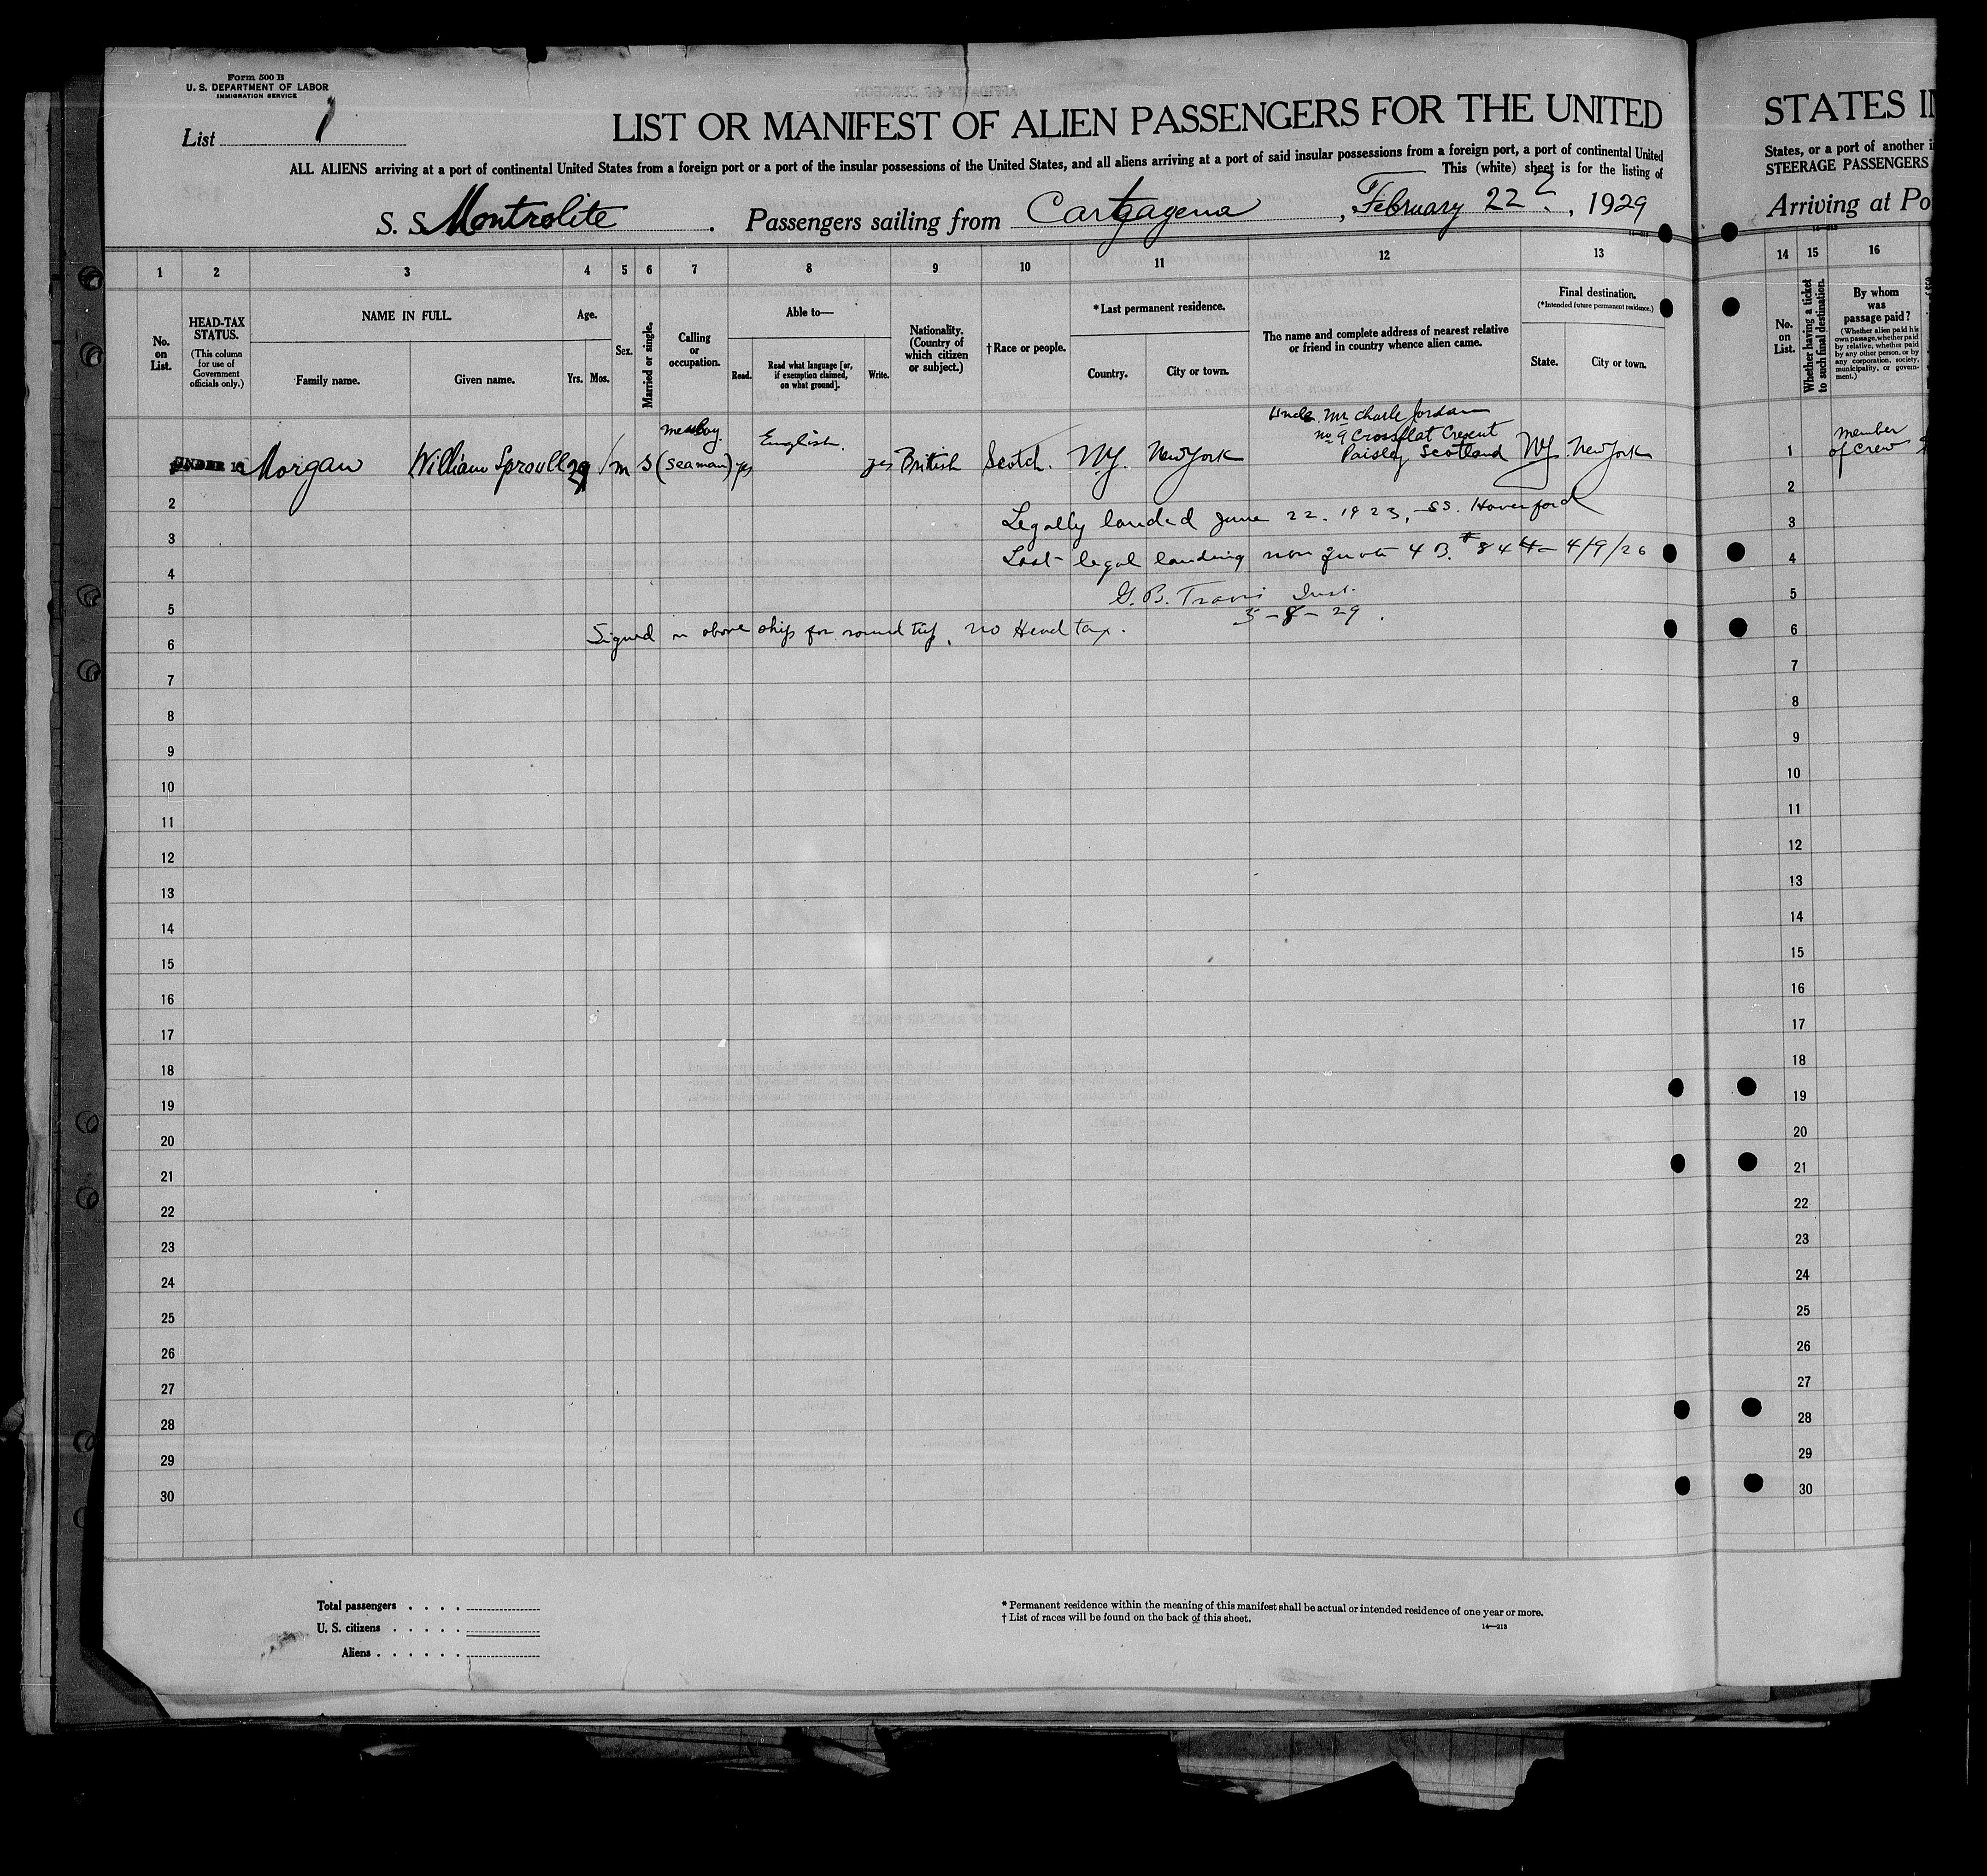 Form 500 B
U. S. DEPARTMENT OF LABOR
IMMIGRATION SERVICE
List 1
LIST OR MANIFEST OF ALIEN PASSENGERS FOR THE UNITED
ALL ALIENS arriving at a port of continental United States from a foreign port or a port of the insular possessions of the United States, and all aliens arriving at a port of said insular possessions from a foreign port, a port of continental United
This (white) sheet is for the listing of
S. S. Montrolite . Passengers sailing from Cartagena , February 22 , 1929
1 2 3 4 5 6 7 8 9 10 11 12 13
No. on List.
HEAD-TAX STATUS.
(This column for use of Government officials only.)
NAME IN FULL.
Family name.
Given name.
Age.
Yrs. Mos.
Sex.
Married or single.
Calling or occupation.
Able to—
Read.
Read what language [or, if exemption claimed, on what ground].
Write.
Nationality. (Country of which citizen or subject.)
†Race or people.
*Last permanent residence.
Country.
City or town.
The name and complete address of nearest relative or friend in country whence alien came.
Final destination.
(*Intended future permanent residence.)
State.
City or town.
Uncle Mr Charle Jordan
messboy English no 9 Crossflat Cresent
UNDER 16 Morgan William Sproull 29 m S (seaman) yes yes British Scotch. N.Y. New York Paisley Scotland NY. New York
2
Legally landed June 22. 1923, SS. Haverford
3
Last legal landing non quota 4 B. # 844 - 4/9/26
4
G. B. Travis Insp.
5
3-8-29.
Signed on above ship for round trip, no Head tax.
6
7
8
9
10
11
12
13
14
15
16
17
18
19
20
21
22
23
24
25
26
27
28
29
30
Total passengers
U. S. citizens
Aliens
* Permanent residence within the meaning of this manifest shall be actual or intended residence of one year or more.
† List of races will be found on the back of this sheet.
14—213
STATES IN
States, or a port of another i
STEERAGE PASSENGERS
Arriving at Po
14 15 16
No. on List.
Whether having a ticket to such final destination.
By whom was passage paid?
(Whether alien paid his own passage, whether paid by relative, whether paid by any other person, or by any corporation, society, municipality, or government.)
member
1 of crew
2
3
4
5
6
7
8
9
10
11
12
13
14
15
16
17
18
19
20
21
22
23
24
25
26
27
28
29
30